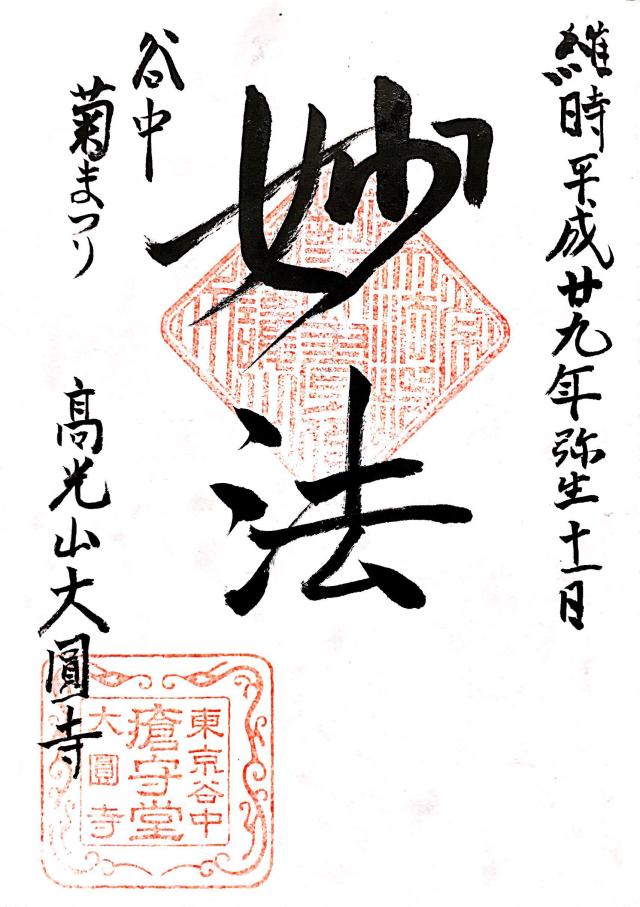 維時平成廿九年弥生十一日
妙法
谷中
菊まつり
高光山大圓寺
東京谷中
瘡守堂
大圓寺